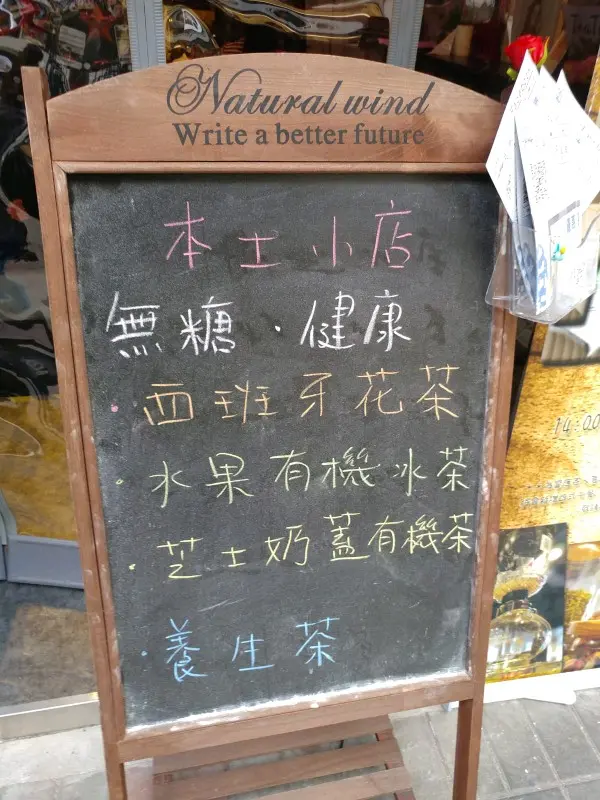 Natural wind
Write a better future
本土小店
無糖·健康
·西班牙花茶
·水果有機冰茶
·芝士奶蓋有機茶
·養生茶
14:00